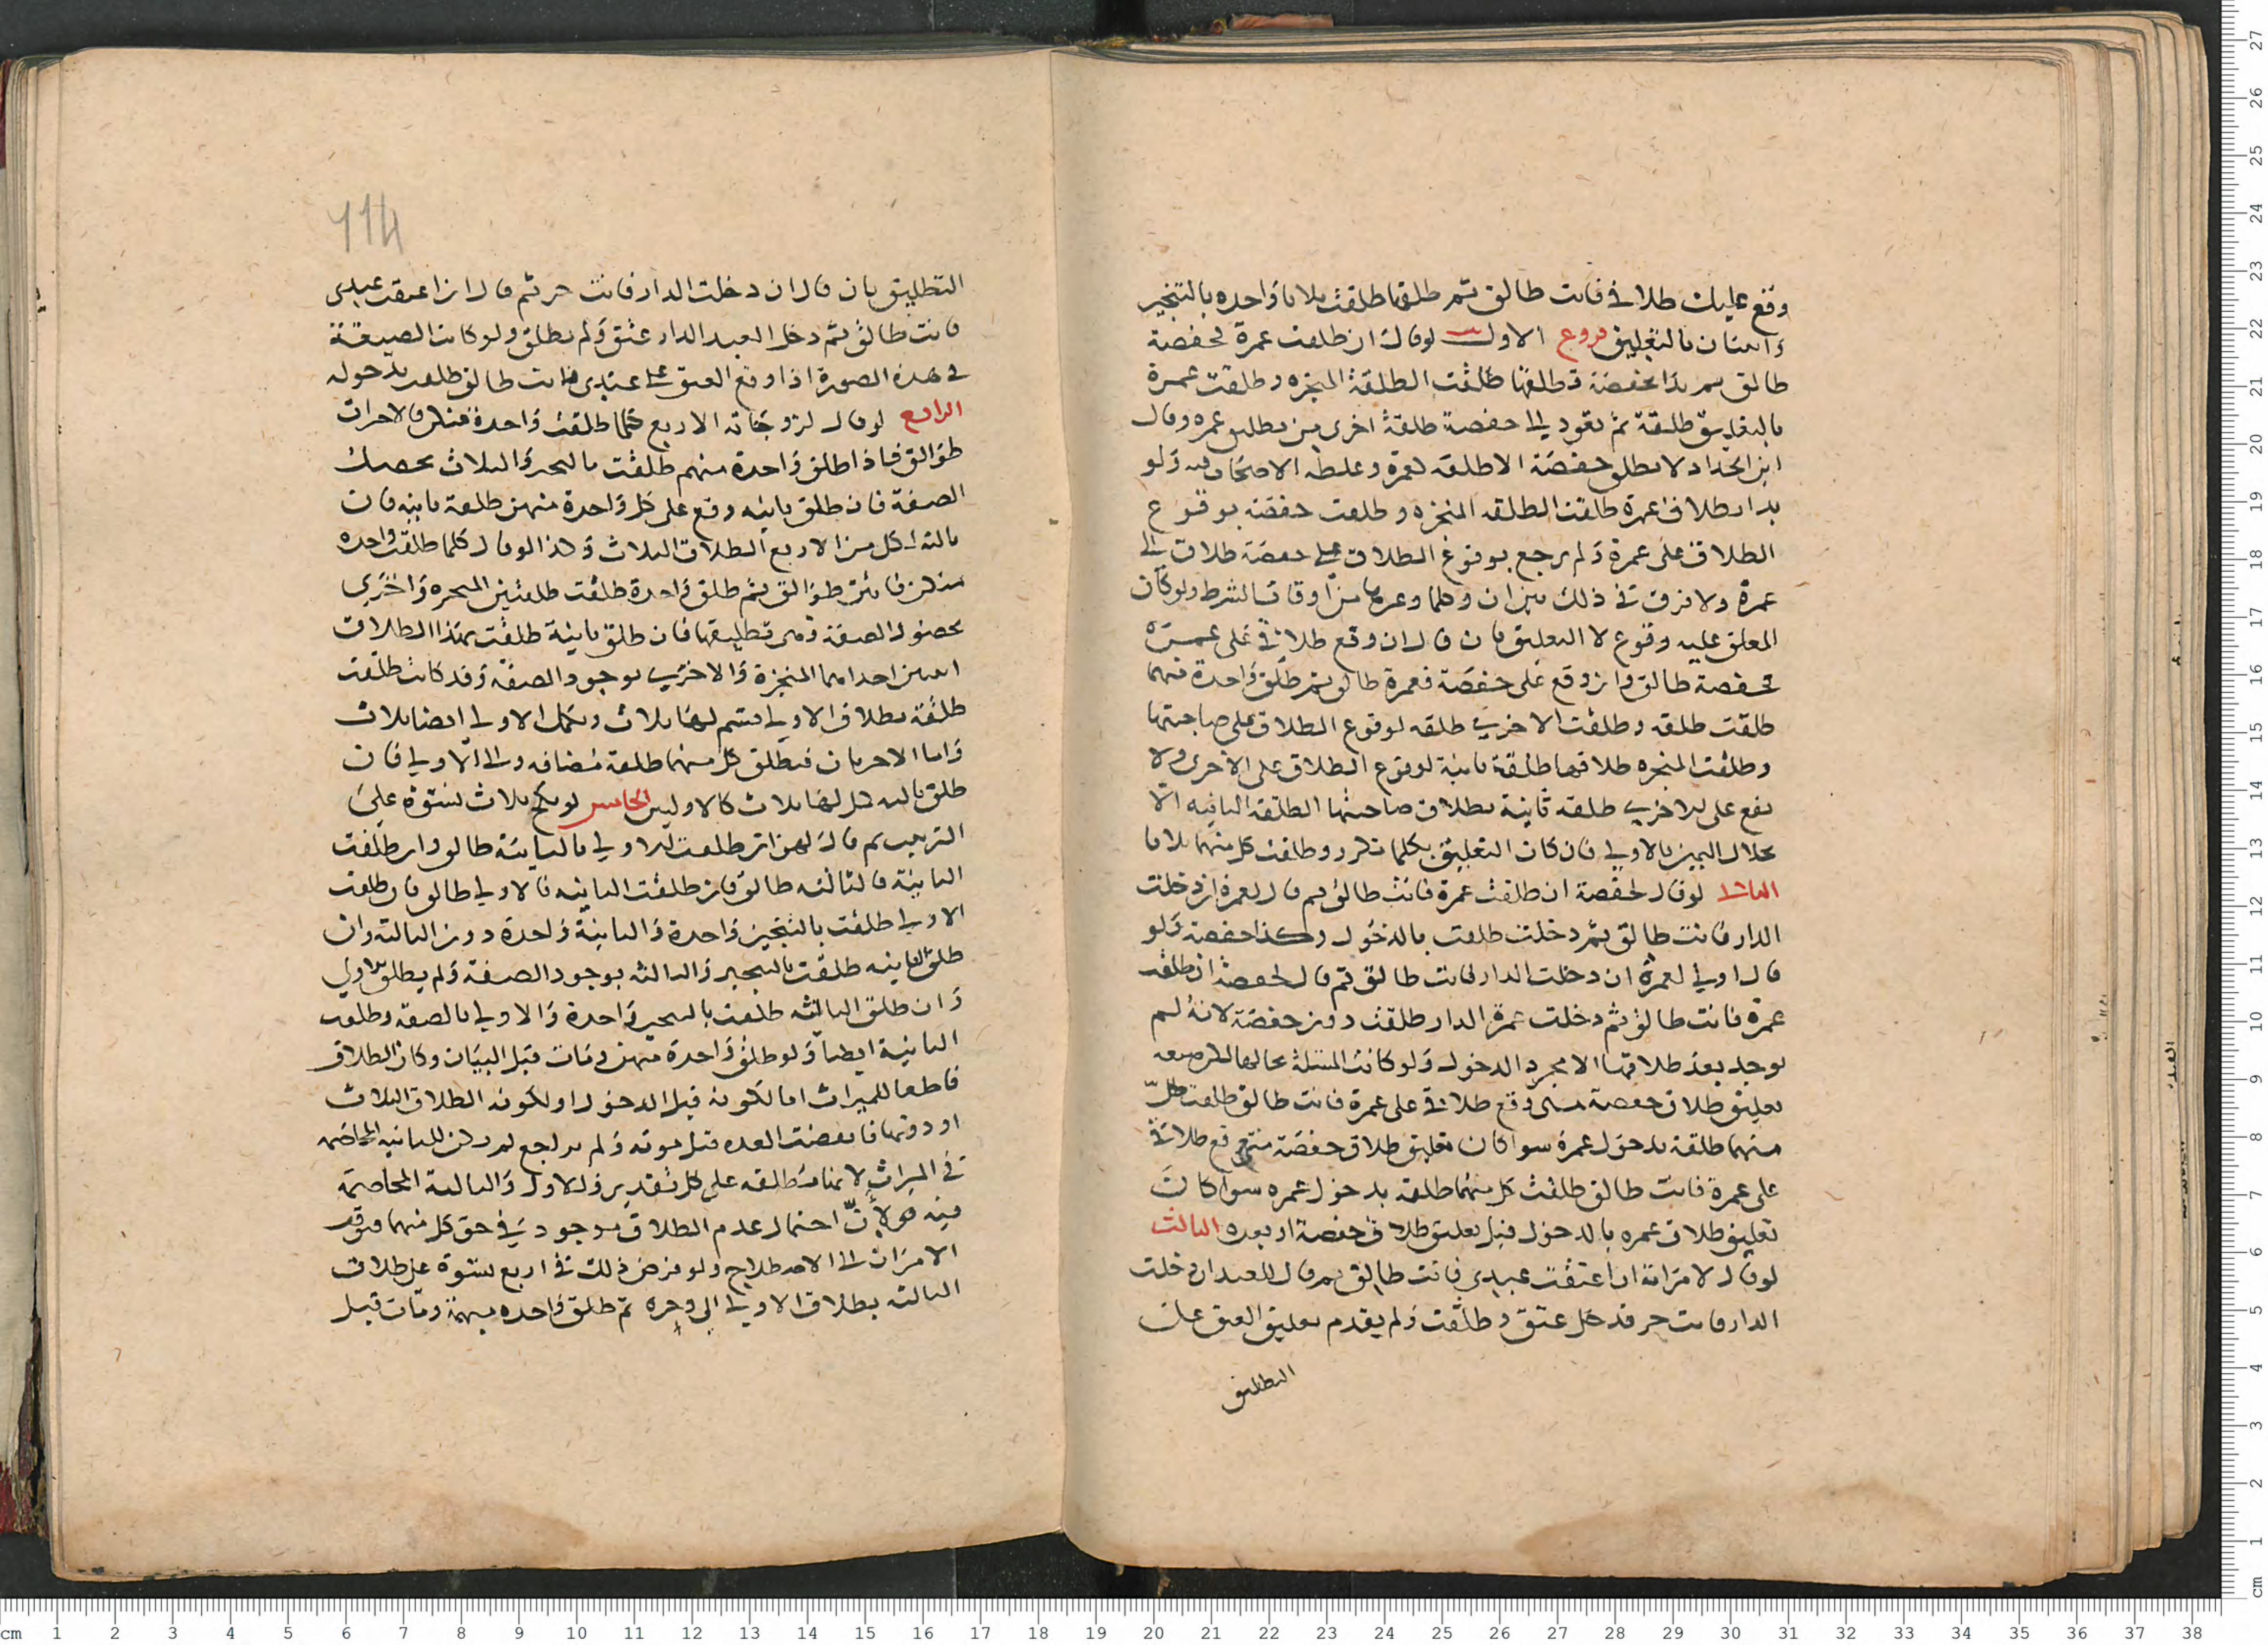 وقع عليك طلاقي فانت طالق ثم طلقها طلقت ثلاثا واحده بالتنجيز
واثنتان بالتعليق فروع الاول لو قال ان طلقت عمرة فحفصة
طالق ثم بدا بحفصة فطلقها طلقت الطلقة المنجزه وطلقت عمرة
بالتعليق طلقة ثم تعود الى حفصة طلقة اخرى من تطليق عمره وقال
ابن الحداد لا تطلق حفصة الا طلقه لعمرة وغلطه الاصحاب فيه ولو
بدا بطلاق عمرة طلقت الطلقه المنجزه وطلقت حفصة بوقوع
الطلاق على عمرة ولم يرجع بوقوع الطلاق على حفصة طلاق الى
عمرة ولا فرق في ذلك بين ان وكلما وغيرهما من اوقات الشرط ولو كان
المعلق عليه وقوع لا التعليق بان قال ان وقع طلاقي على عمرة
فحفصة طالق وان وقع على حفصة فعمرة طالق ثم طلق واحدة منهما
طلقت طلقه وطلقت الاخرى طلقه لوقوع الطلاق على صاحبتها
وطلقت المنجزه طلاقها طلقة ثانية لوقوع الطلاق على الاخرى ولا
يقع على الاخرى طلقه ثانية بطلاق صاحبتها الطلقه الثانيه
انحلال اليمين بالاولى فان كان التعليق بكلما تكرر وطلقت كل منهما ثلاثا
الثاني لو قال لحفصة ان طلقت عمرة فانت طالق ثم قال لعمرة ان دخلت
الدار فانت طالق ثم دخلت طلقت بالدخول وكذا حفصة ولو
قال اولى لعمرة ان دخلت الدار فانت طالق ثم قال لحفصة ان طلقت
عمرة فانت طالق ثم دخلت عمرة الدار طلقت دون حفصة لانه لم
يوجد بعد طلاقها الا مجرد الدخول ولو كانت المسئلة بحالها لكن صيغه
تعليق طلاق حفصة متى وقع طلاقي على عمرة فانت طالق طلقت كل
منهما طلقة بدخول عمرة سوا كان تعليق طلاق حفصة متى وقع طلاقي
على عمرة فانت طالق طلقت كل منهما طلقه بدخول عمره سوا كان
تعليق طلاق عمره بالدخول قبل تعليق طلاق حفصة او بعده الثالث
لو قال لامراته ان اعتقت عبدي فانت طالق ثم قال للعبد ان دخلت
الدار فانت حر فدخل عتق وطلقت ولم يقدم تعليق العتق على
التطليق
114
التطليق بان قال ان دخلت الدار فانت حر ثم قال ان اعتقت عبدي
فانت طالق ثم دخل العبد الدار عتق ولم تطلق ولو كانت الصيغة
في هذه الصورة اذا وقع العتق على عبدي فانت طالق طلقت بدخوله
الرابع لو قال لزوجاته الاربع كلما طلقت واحدة منكن فالاخرات
طوالق فاذا طلق واحدة منهم طلقت بالتنجيز والثلاث بحصول
الصفة فان طلق ثانيه وقع على كل واحدة منهن طلقة ثانيه فان
ثالثه كل من الاربع الطلاق الثلاث وكذا لو قال كلما طلقت واحده
منكن فانتن طوالق ثم طلق واحدة طلقت طلقتين المنجزه واخرى
بحصول الصفة وهى تطليقها فان طلق ثانية طلقت بهذا الطلاق
اثنتين احداهما المنجزة والاخرى بوجود الصفة وقد كانت طلقت
طلقة بطلاق الاولى فتتم لها ثلاث وتكمل الاولى ايضا ثلاث
واما الاخريان فتطلق كل منهما طلقة مضافه الى الاولى فان
طلق ثالثه كمل لها ثلاث كالاوليين الخامس لو نكح ثلاث نسوة على
الترتيب ثم قال لهن ان طلقت الاولى فالثانية طالق وان طلقت
الثانية فالثالثه طالق فان طلقت الثانيه فالاولى طالق فان طلقت
الاولى طلقت بالتنجيز واحدة والثانية واحدة دون الثالثه وان
طلق الثانيه طلقت بالتنجيز والثالثه بوجود الصفة ولم يطلق الاولى
وان طلق الثالثه طلقت بالتنجيز واحدة والاولى بالصفه وطلقت
الثانية ايضا ولو طلق واحدة منهن ومات قبل البيان وكان الطلاق
قاطعا للميراث اما لكونه قبل الدخول او لكونه الطلاق الثلاث
او دونها فانقضت العده قبل موته ولم يراجع لم يكن للثانيه المخاصمه
في الميراث لانها مطلقه على كل تقدير وللاولى والثالثه المخاصمة
فيه لان احتمال عدم الطلاق موجود في حق كل منهما فيوقف
الامران الى الاصطلاح ولو فرض ذلك في اربع نسوة على طلاق
الثالثه بطلاق الاولى الى وجره ثم طلق واحده مبهمة ومات قبل